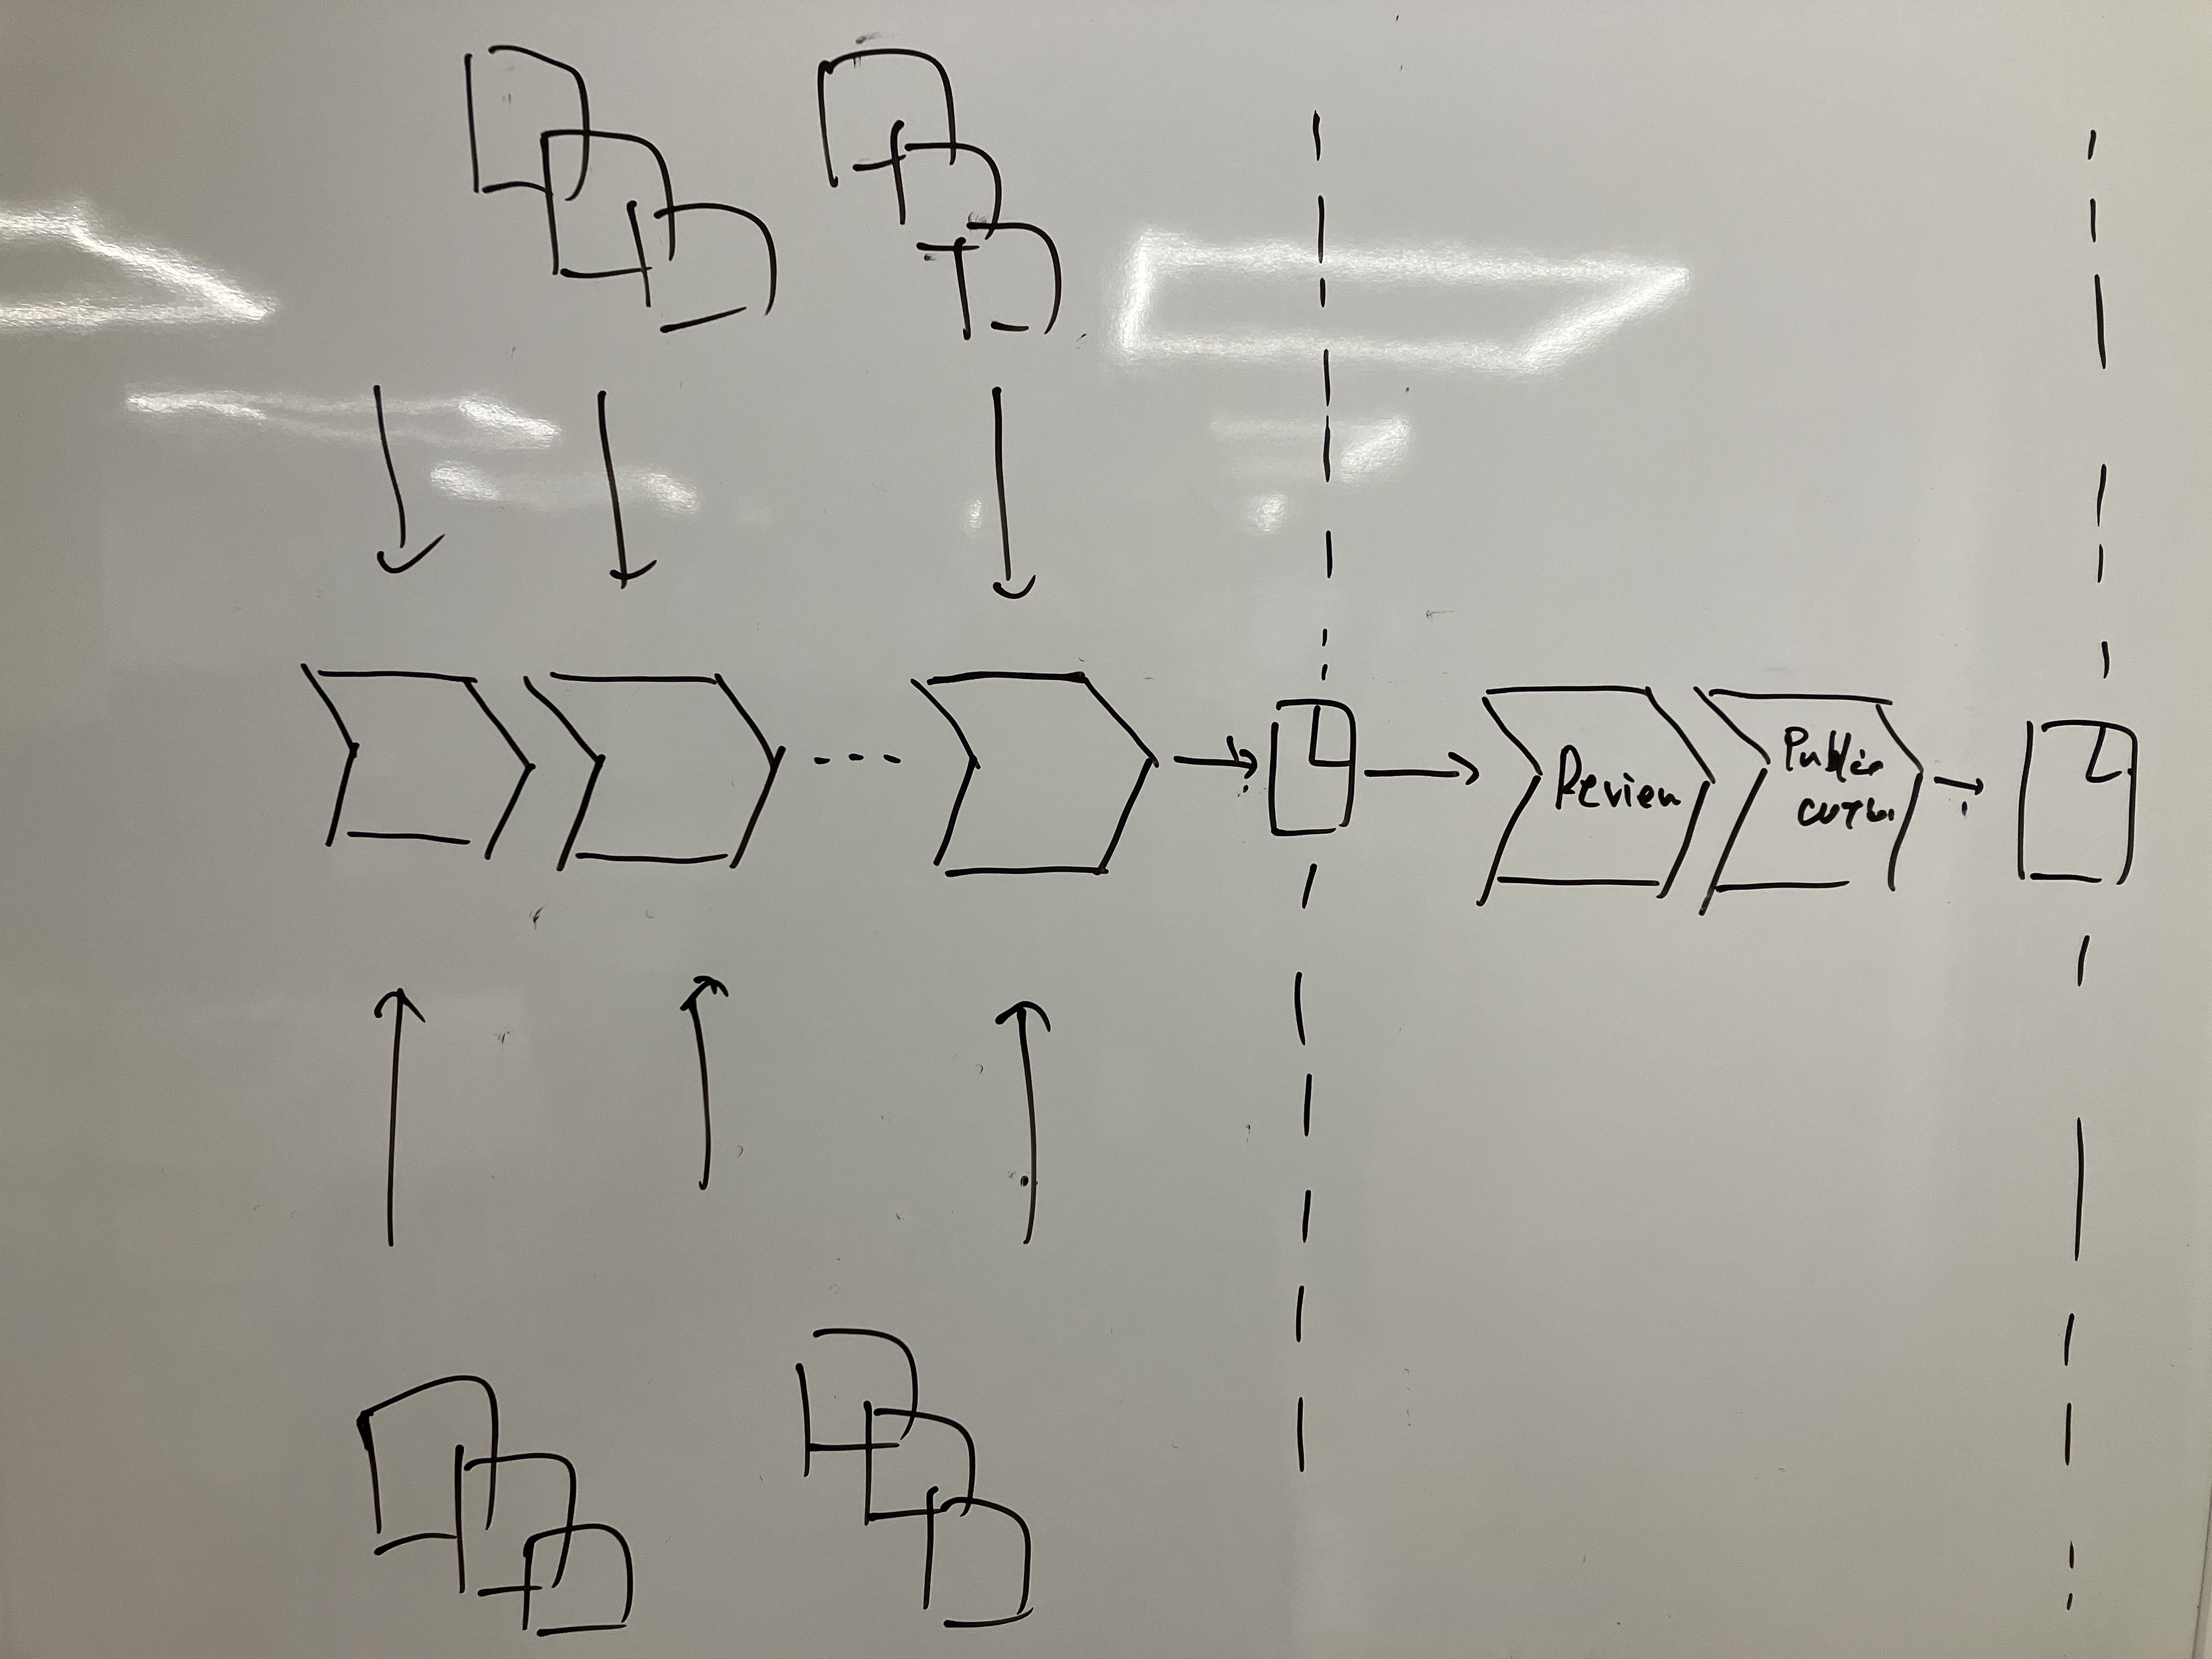 Review
Public